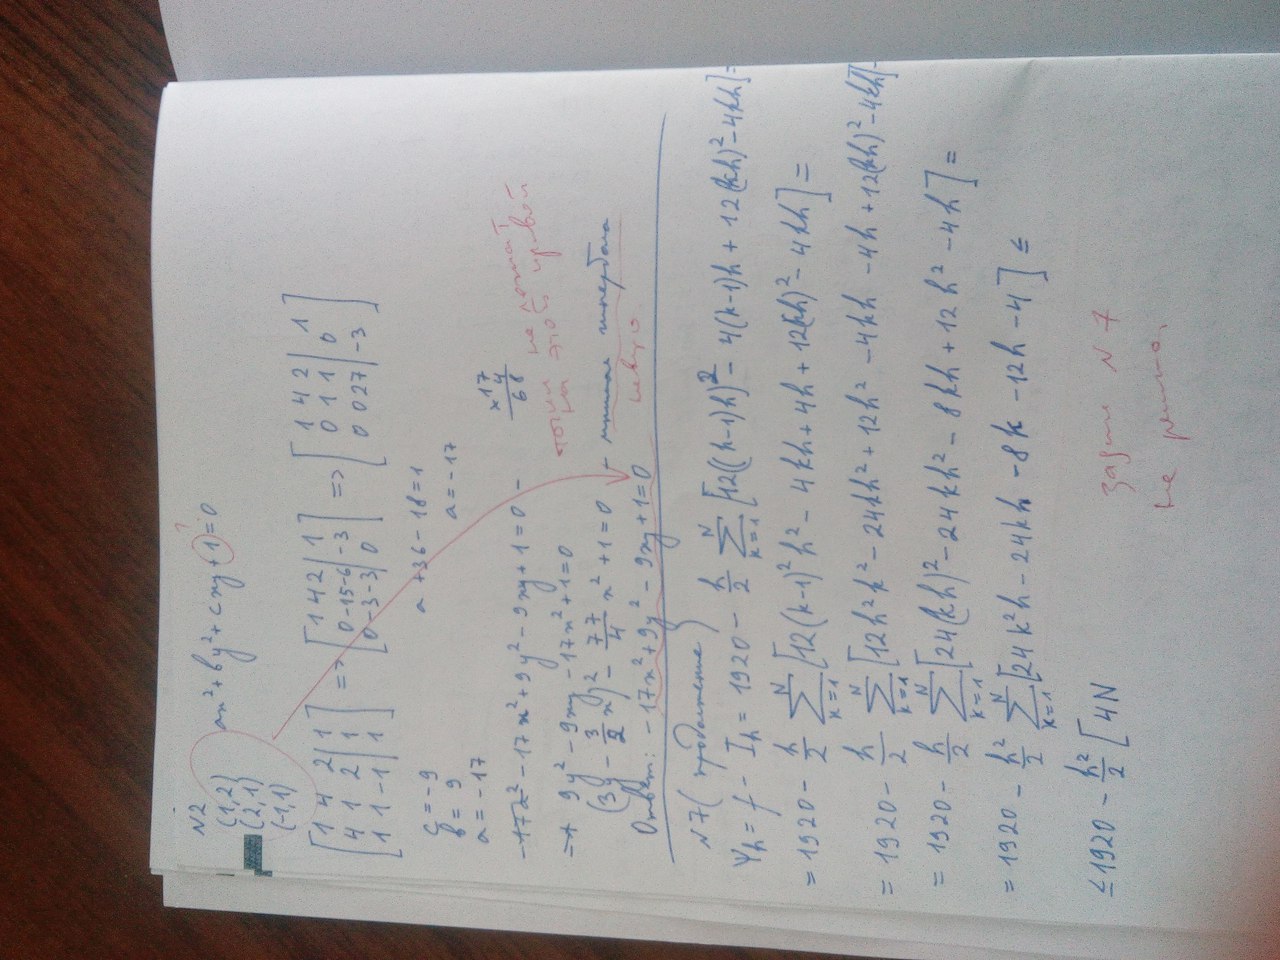 N2
(1,2)
(2,1)
(-1,1)
ax² + by² + cxy + 1 = 0
?
[1 4 2 | 1
4 1 2 | 1
1 1 -1 | 1] => [1 4 2 | 1
0 -15 -6 | -3
0 -3 -3 | 0] => [1 4 2 | 1
0 1 1 | 0
0 0 27 | -3]
c = -9
b = 9
a = -17
a + 36 - 18 = 1
a = -17
-17x² - 17x² + 9y² - 9xy + 1 = 0 -
×17
4
68
9y² - 9xy - 17x² + 1 = 0
точки не лежат
на этой кривой
(3y - 3/2 x)² - 77/4 x² + 1 = 0 - мнимая гипербола
Ответ: -17x² + 9y² - 9xy + 1 = 0
неверно
N7 (продолжение)
Ψh = f - Ih = 1920 - h/2 N∑k=1 [12((k-1)h)² - 4(k-1)h + 12(kh)² - 4kh] =
= 1920 - h/2 N∑k=1 [12(k-1)²h² - 4kh + 4h + 12(kh)² - 4kh] =
= 1920 - h/2 N∑k=1 [12h²k² - 24kh² + 12h² - 4kh - 4h + 12(kh)² - 4kh] -
= 1920 - h/2 N∑k=1 [24(kh)² - 24kh² - 8kh + 12h² - 4h] =
= 1920 - h²/2 N∑k=1 [24k²h - 24kh - 8k - 12h - 4] ≤
≤ 1920 - h²/2 [4N
задача N 7
не решена.